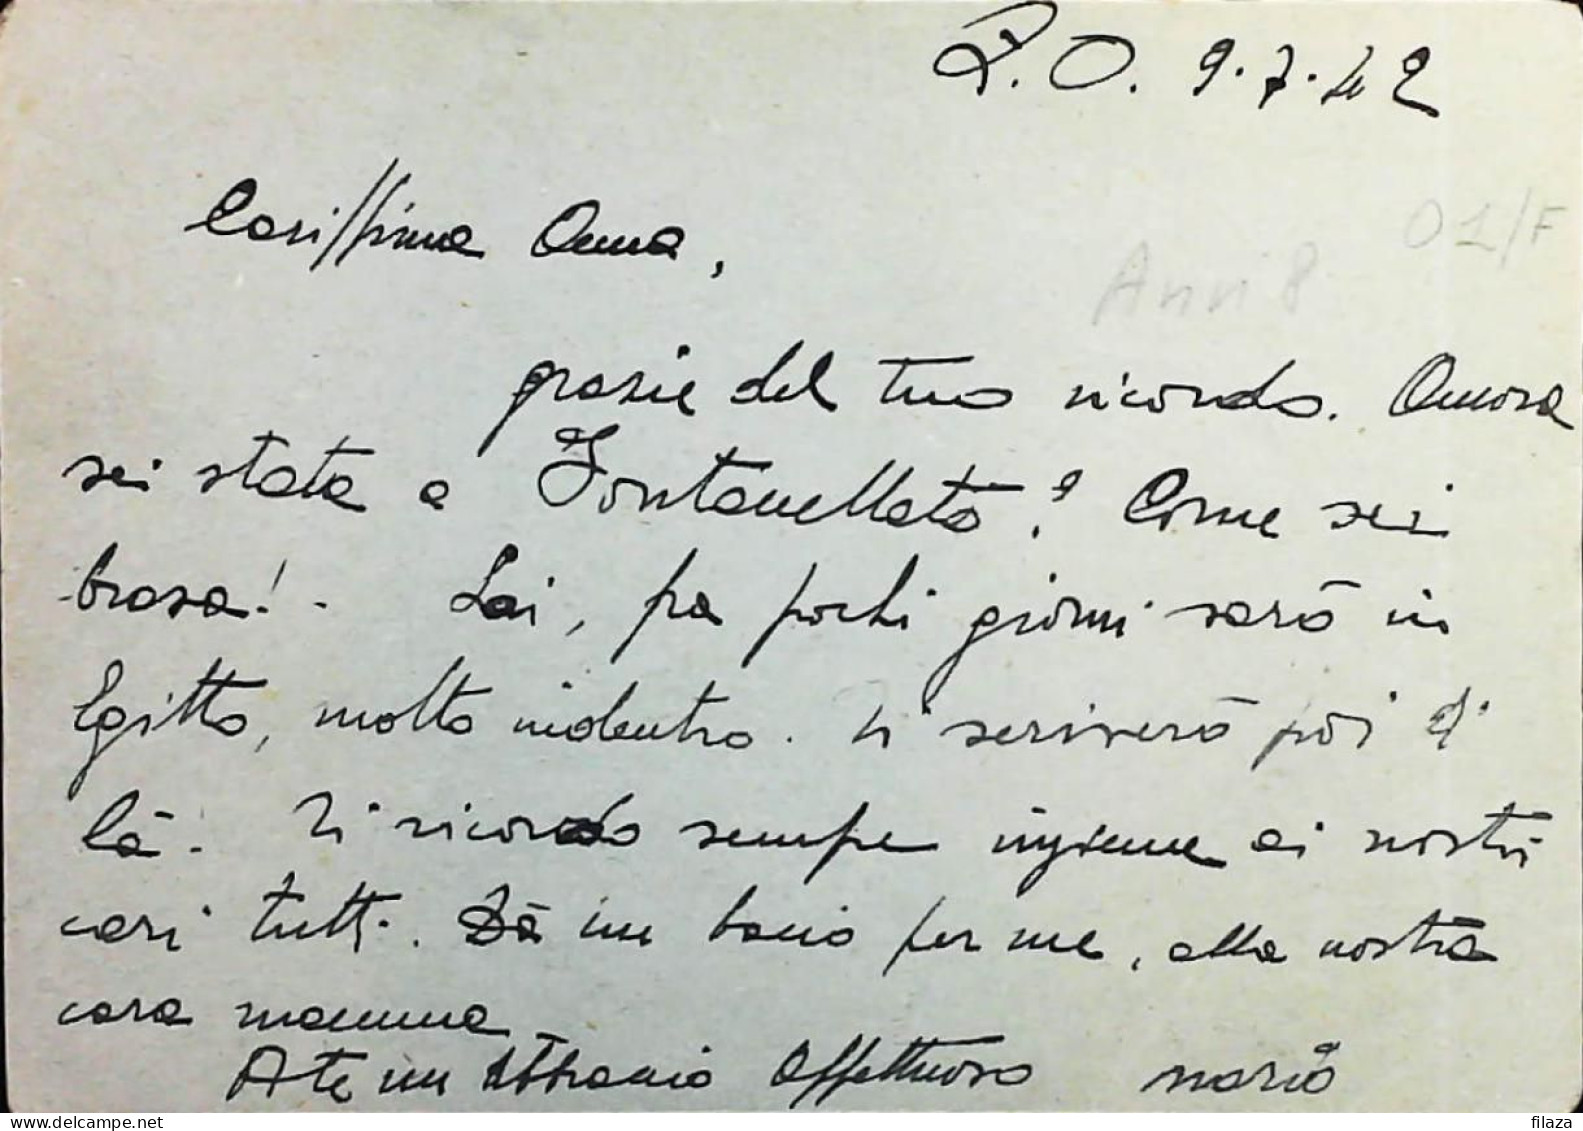 P.O. 9.7.42
Carissima Anna,
01/F
Ann 8
grazie del tuo ricordo. Ancora
sei stata a Fontanellato? Come sei
brava! - Sai, fra pochi giorni sarò in
Egitto, molto indentro. Ti scriverò poi di
là. Ti ricordo sempre insieme ai nostri
cari tutti. Dà un bacio per me, alla nostra
cara mamma
A te un abbraccio affettuoso Mario
www.delcampe.net
filaza